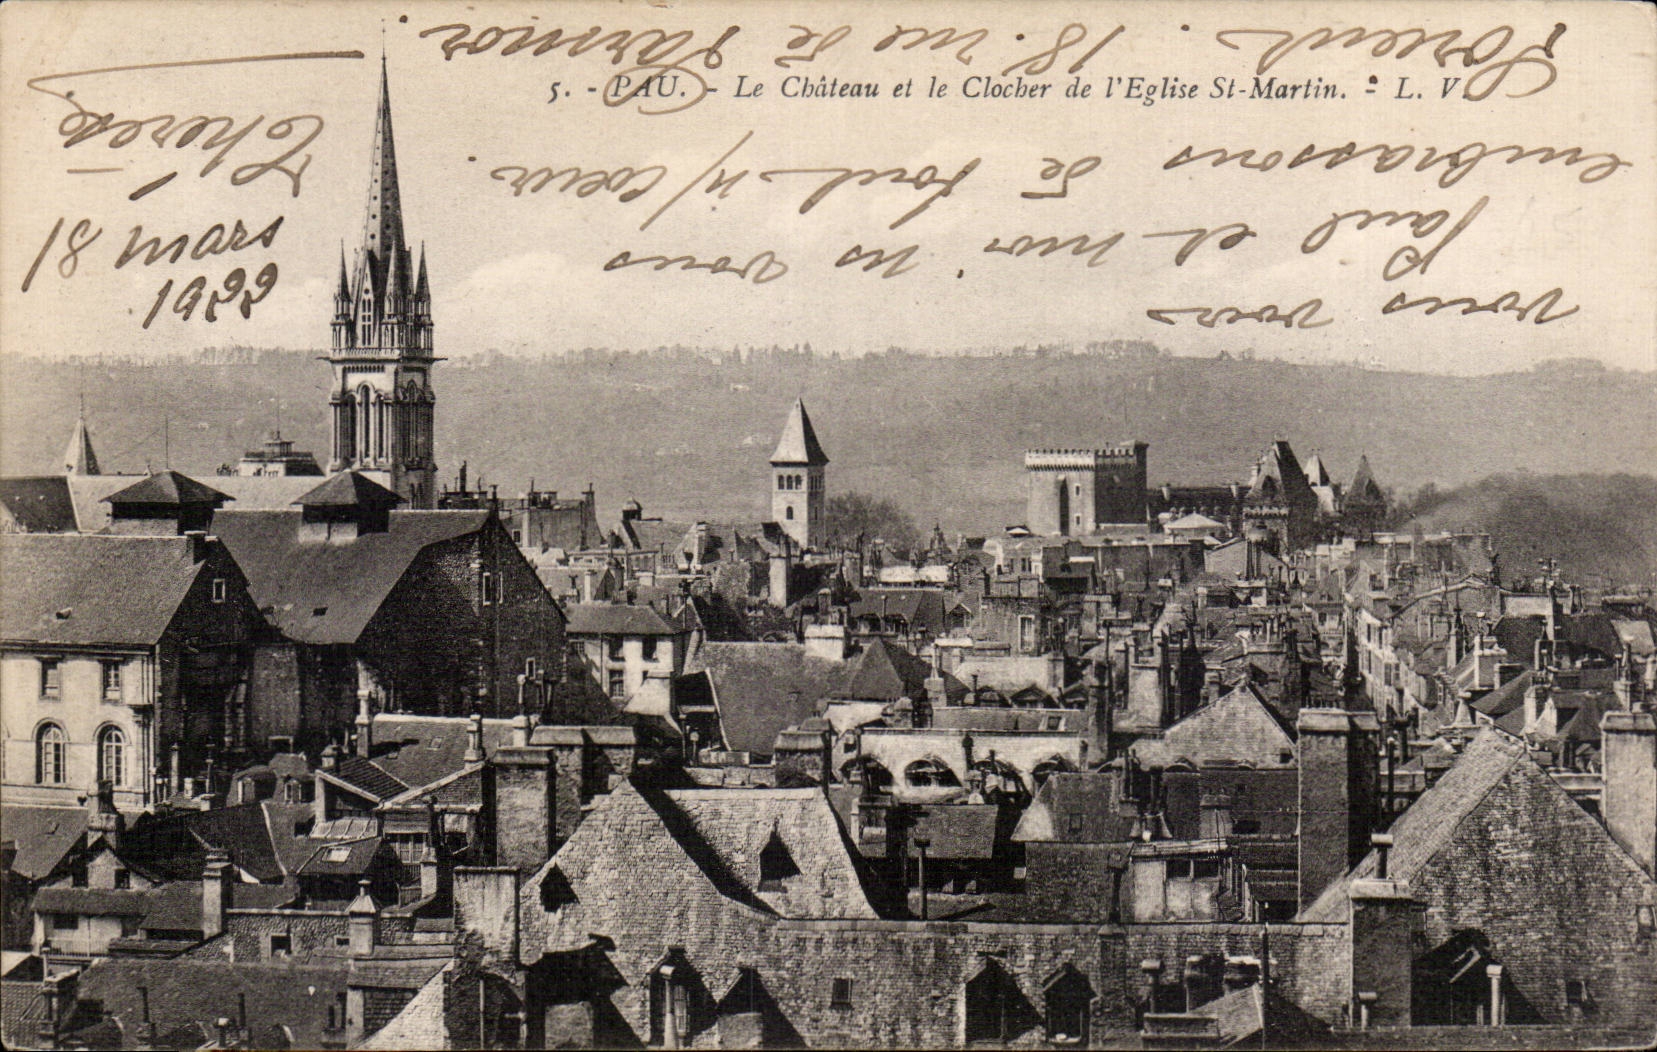 5. - PAU. - Le Château et le Clocher de l'Eglise St-Martin. - L. V.
18 mars
1922
vous voir
Paul et moi ns vous
embrassons de tout n/ Coeur.
Lorient. 18. rue de Larmor.
Thérèse